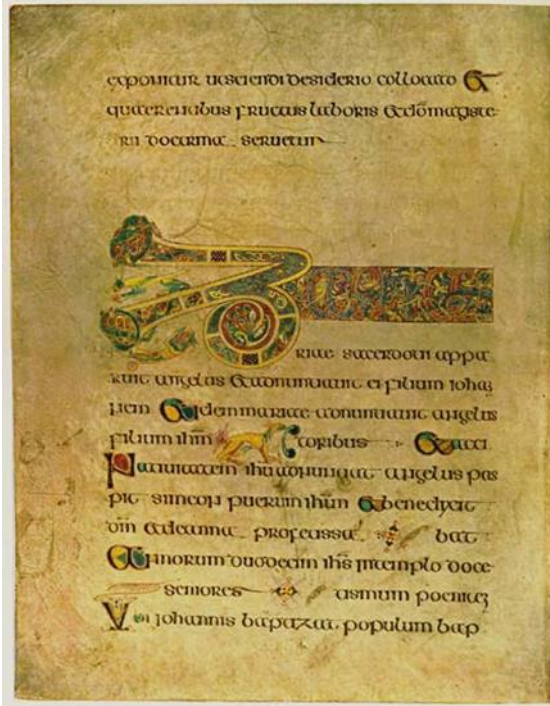 exponitur ut sciendi desiderio collocato Et
quaerentibus fructus laboris & magiste
rii doctrina seruetur
Z
riae sacerdoti appa
ruit angelus & adnuntiauit ei filium iohan
nem Et idem mariae adnuntiauit angelus
filium ihm toribus Et acci
Natiuitatem ihu adnuntiat angelus pas
pit simeon puerum ihm Et benedixit
dm & de anna profetissa bat
Annorum duodecim ihs in templo doce
seniores tismum poeniten
Ubi iohannis baptizat populum bap